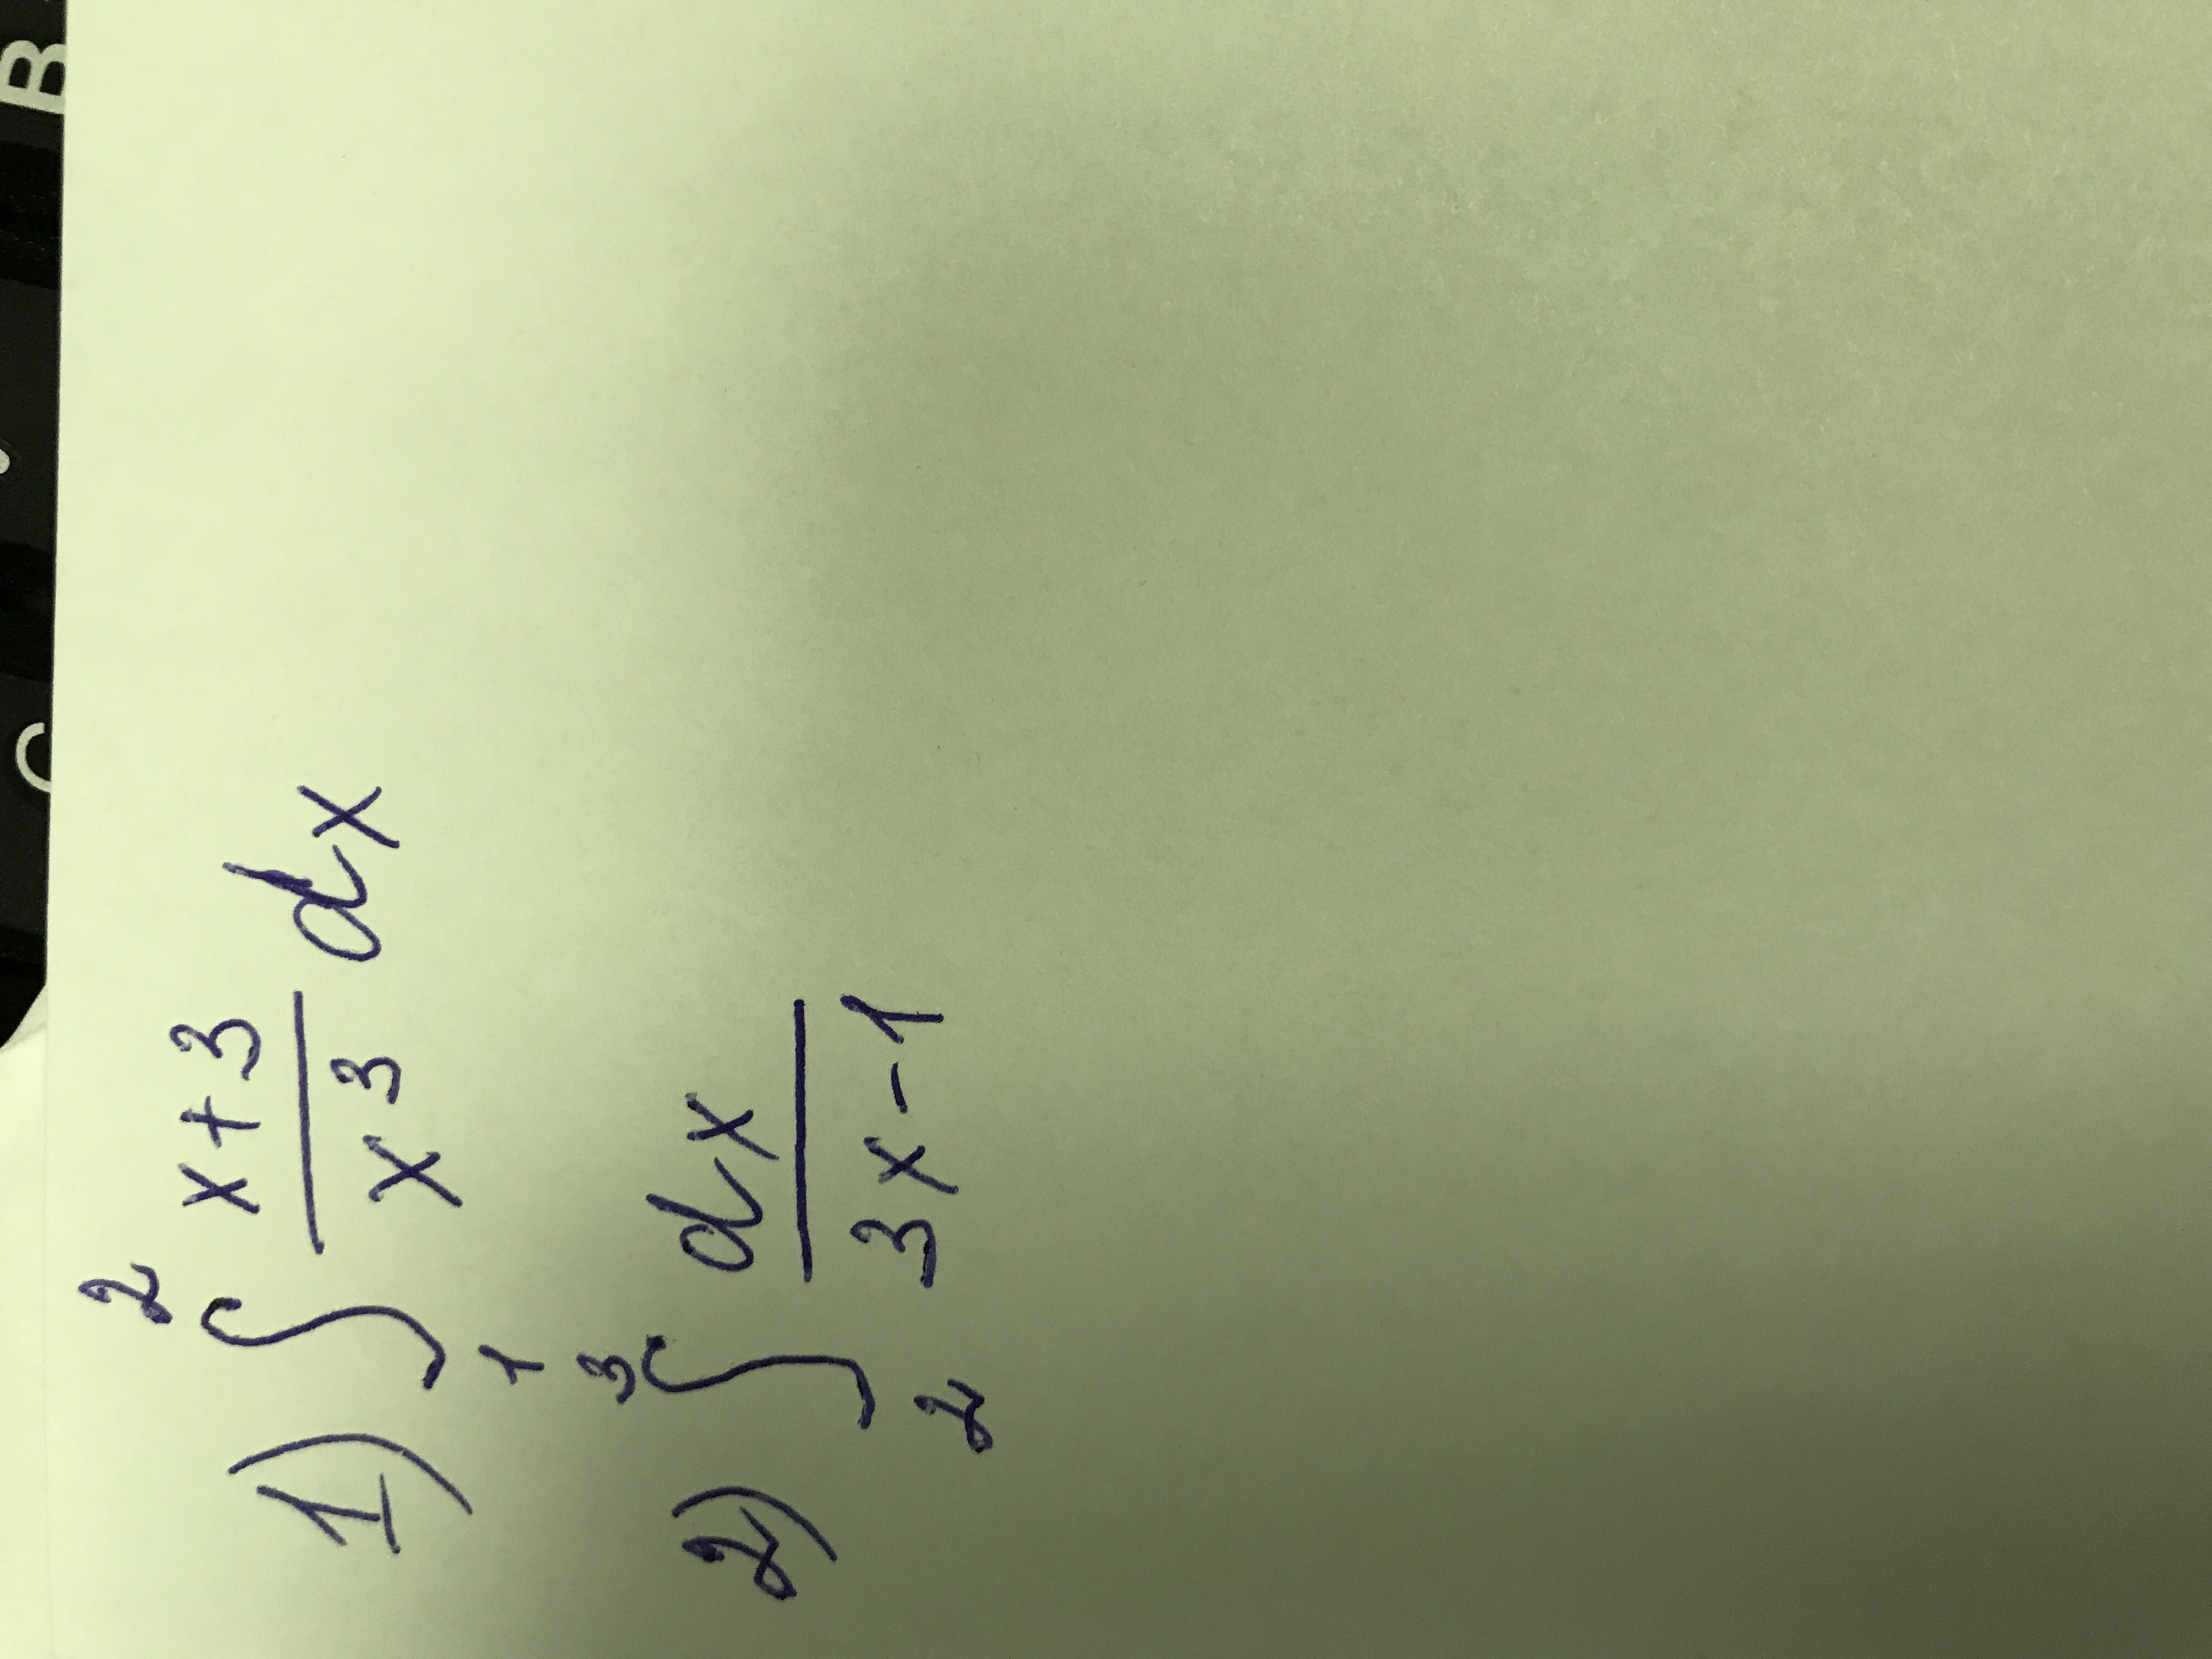 1) ∫₁² (x+3)/x³ dx
2) ∫₂³ dx/(3x-1)
B